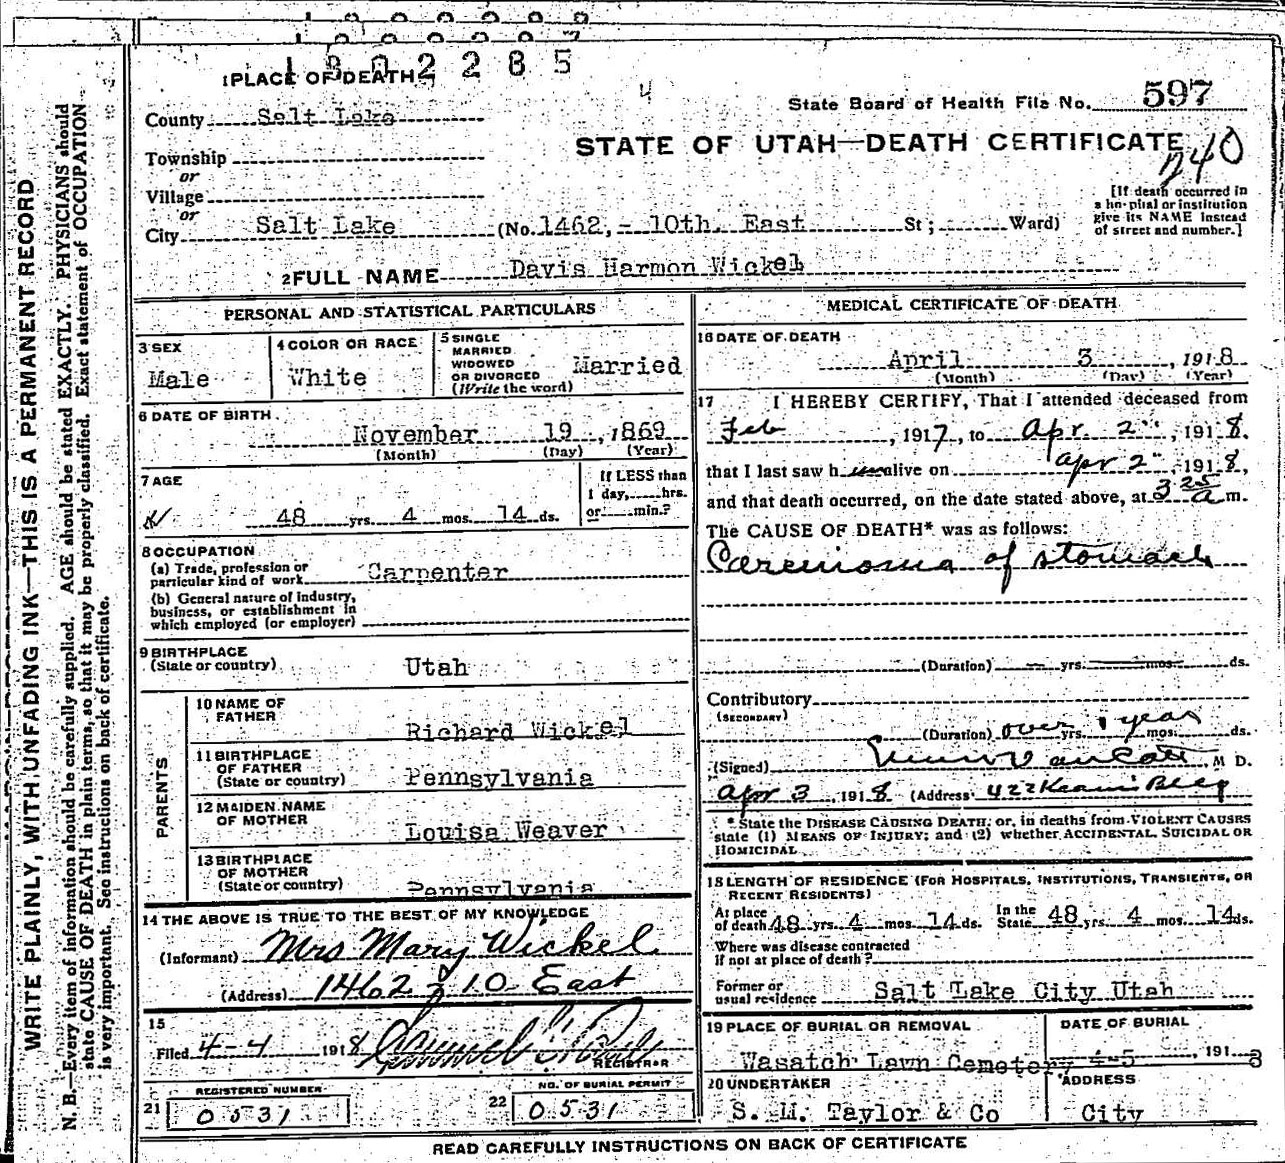 1902285
1 PLACE OF DEATH
4
State Board of Health File No. 597
County Salt Lake
STATE OF UTAH—DEATH CERTIFICATE
Township
or
Village
or
240
[If death occurred in
a hospital or institution
give its NAME instead
of street and number.]
City Salt Lake (No. 1462, - 10th East St; Ward)
2 FULL NAME Davis Harmon Wickel
PERSONAL AND STATISTICAL PARTICULARS
3 SEX
Male
4 COLOR OR RACE
White
5 SINGLE
MARRIED
WIDOWED
OR DIVORCED
(Write the word)
Married
6 DATE OF BIRTH
November 19, 1869
(Month) (Day) (Year)
7 AGE
48 yrs. 4 mos. 14 ds.
If LESS than
1 day, hrs.
or min.?
8 OCCUPATION
(a) Trade, profession or
particular kind of work Carpenter
(b) General nature of industry,
business, or establishment in
which employed (or employer)
9 BIRTHPLACE
(State or country) Utah
PARENTS
10 NAME OF
FATHER Richard Wickel
11 BIRTHPLACE
OF FATHER
(State or country) Pennsylvania
12 MAIDEN NAME
OF MOTHER Louisa Weaver
13 BIRTHPLACE
OF MOTHER
(State or country) Pennsylvania
14 THE ABOVE IS TRUE TO THE BEST OF MY KNOWLEDGE
(Informant) Mrs Mary Wickel
(Address) 1462 10 East
15
Filed 4-4 1918
REGISTRAR
REGISTERED NUMBER
21 0531
NO. OF BURIAL PERMIT
22 0531
MEDICAL CERTIFICATE OF DEATH
16 DATE OF DEATH
April 3, 1918
(Month) (Day) (Year)
17 I HEREBY CERTIFY, That I attended deceased from
Feb, 1917, to Apr. 2", 1918.
that I last saw h alive on Apr 2", 1918,
and that death occurred, on the date stated above, at 3 25/a m.
The CAUSE OF DEATH* was as follows:
Carcinoma of stomach
(Duration) yrs. mos. ds.
Contributory
(SECONDARY)
(Duration) over 1 year yrs. mos. ds.
(Signed) M D.
Apr 3, 1918 (Address) 422
* State the DISEASE CAUSING DEATH; or, in deaths from VIOLENT CAUSES
state (1) MEANS OF INJURY; and (2) whether ACCIDENTAL, SUICIDAL OR
HOMICIDAL
18 LENGTH OF RESIDENCE (FOR HOSPITALS, INSTITUTIONS, TRANSIENTS, OR
RECENT RESIDENTS)
At place
of death 48 yrs. 4 mos. 14 ds.
In the
State 48 yrs. 4 mos. 14 ds.
Where was disease contracted
if not at place of death?
Former or
usual residence Salt Lake City Utah
19 PLACE OF BURIAL OR REMOVAL
Wasatch Lawn Cemetery
DATE OF BURIAL
4-5, 191 8
20 UNDERTAKER
S. M. Taylor & Co
ADDRESS
City
READ CAREFULLY INSTRUCTIONS ON BACK OF CERTIFICATE
WRITE PLAINLY, WITH UNFADING INK—THIS IS A PERMANENT RECORD
N. B.—Every item of information should be carefully supplied. AGE should be stated EXACTLY. PHYSICIANS should
state CAUSE OF DEATH in plain terms, so that it may be properly classified. Exact statement of OCCUPATION
is very important. See instructions on back of certificate.